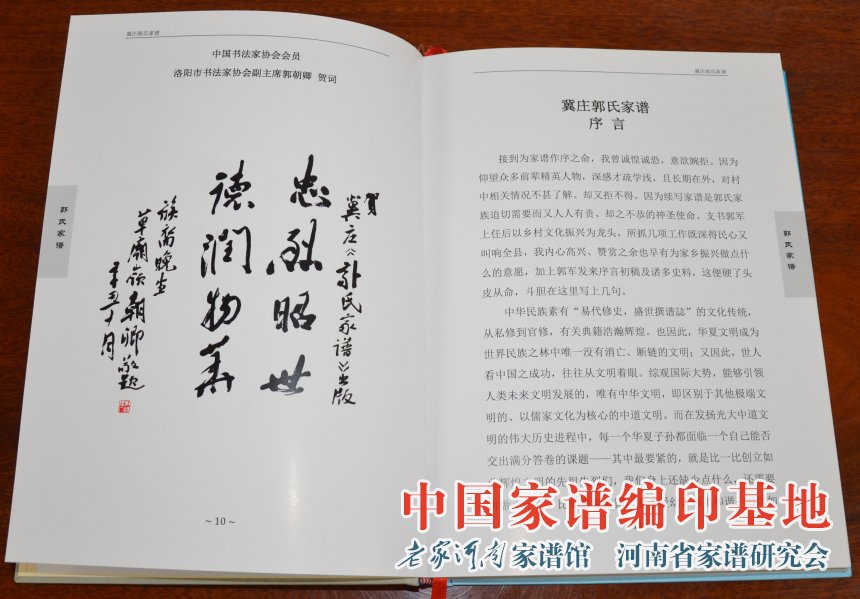 冀庄郭氏家谱
中国书法家协会会员
洛阳市书法家协会副主席郭朝卿 贺词
贺
冀庄郭氏家谱出版
忠烈昭世
德润物华
族裔晚生
草庙岭朝卿敬题
辛丑十月
郭氏家谱
~ 10 ~
冀庄郭氏家谱
冀庄郭氏家谱
序 言
接到为家谱作序之命，我曾诚惶诚恐，意欲婉拒。因为
仰望众多前辈精英人物，深感才疏学浅，且长期在外，对村
中相关情况不甚了解。却又拒不得。因为续写家谱是郭氏家
族迫切需要而又人人有责、却之不恭的神圣使命。支书郭军
上任后以乡村文化振兴为龙头，所抓几项工作既深得民心又
叫响全县，我内心高兴、赞赏之余也早有为家乡振兴做点什
么的意愿，加上郭军发来序言初稿及诸多史料，这便硬了头
皮从命，斗胆在这里写上几句。
中华民族素有“易代修史，盛世撰谱誌”的文化传统，
从私修到官修，有关典籍浩瀚辉煌。也因此，华夏文明成为
世界民族之林中唯一没有消亡、断链的文明；又因此，世人
看中国之成功，往往从文明着眼。综观国际大势，能够引领
人类未来文明发展的，唯有中华文明，即区别于其他极端文
明的、以儒家文化为核心的中道文明。而在发扬光大中道文
明的伟大历史进程中，每一个华夏子孙都面临一个自己能否
交出满分答卷的课题——其中最要紧的，就是比一比创立如
辉煌文明的先祖先烈们，我们身上还缺少点什么，还需要
郭氏家谱
中国家谱编印基地
老家河南家谱馆 河南省家谱研究会